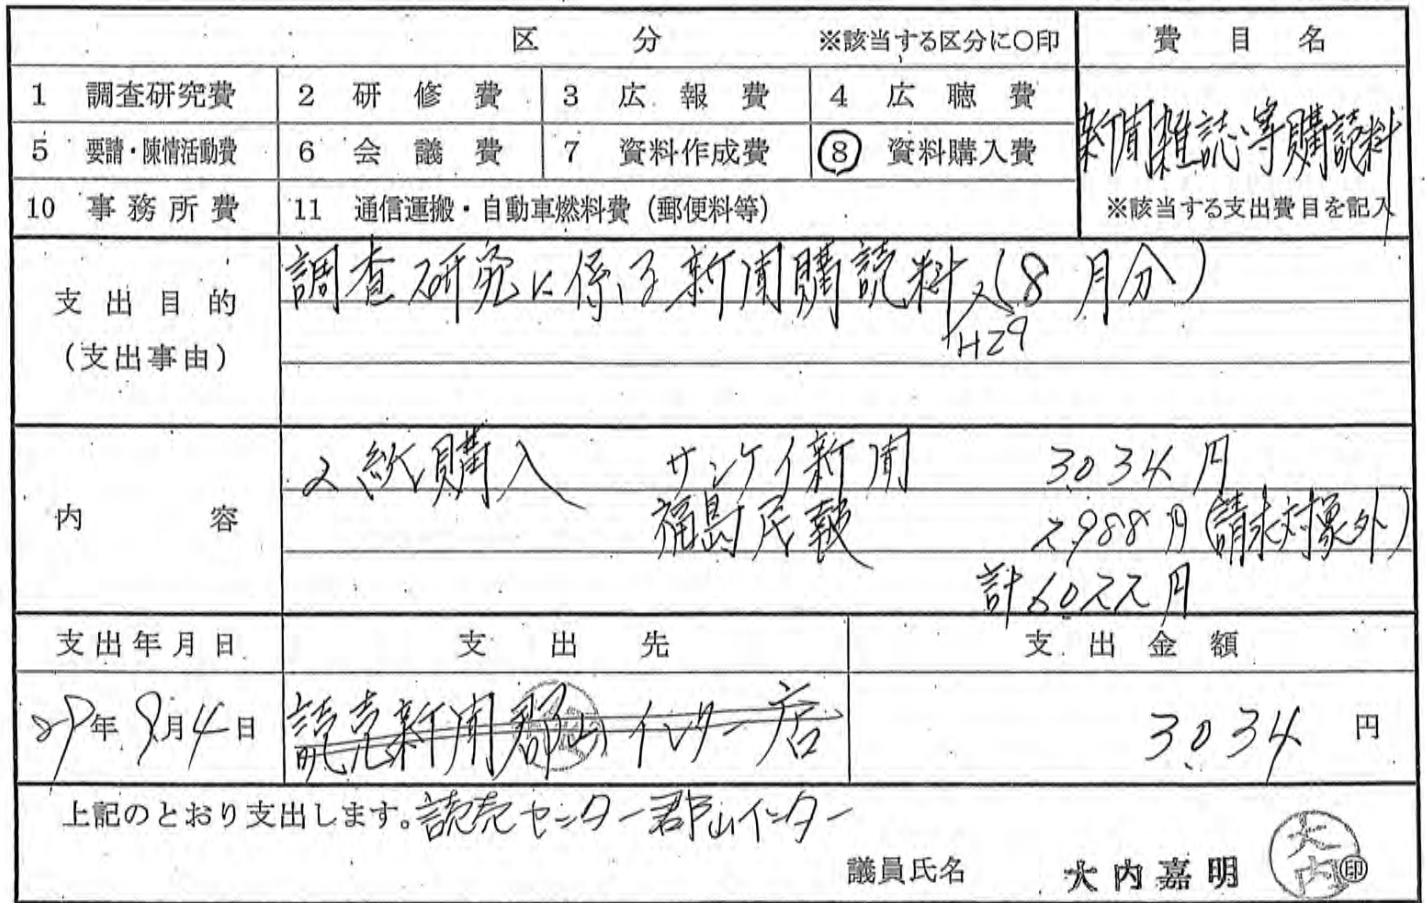 区 分 ※該当する区分に○印 費 目 名
1 調査研究費 2 研 修 費 3 広 報 費 4 広 聴 費
新聞雑誌等購読料
5 要請・陳情活動費 6 会 議 費 7 資料作成費 8 資料購入費
10 事 務 所 費 11 通信運搬・自動車燃料費（郵便料等） ※該当する支出費目を記入
支 出 目 的 調査研究に係る新聞購読料(8月分)
H29
(支出事由)
2紙購入 サンケイ新聞 3034円
内 容 福島民報 2,988円(請求対象外)
計6022円
支出年月日 支 出 先 支 出 金 額
29年9月4日 読売新聞郡山インター店 3034 円
上記のとおり支出します。読売センター郡山インター
議員氏名 大内嘉明 大内 印